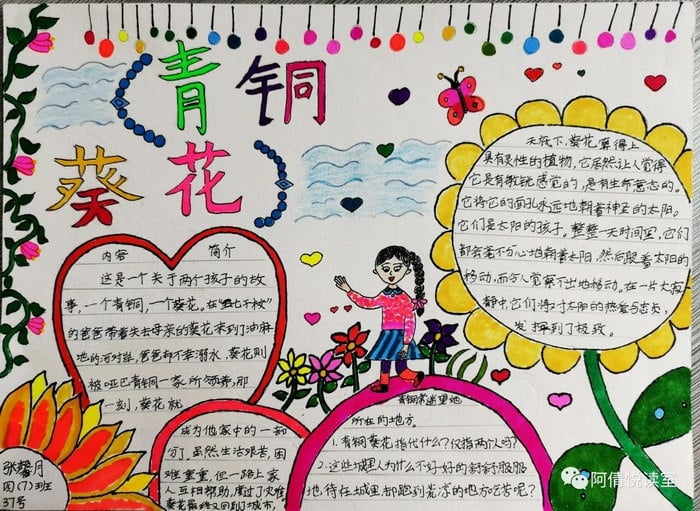 青铜
葵花
内容 简介
这是一个关于两个孩子的故
事，一个青铜，一个葵花。在
的爸爸带着失去母亲的葵花来到
地的河对岸，爸爸却不幸溺水，葵花则
被哑巴青铜一家所领养，那
一刻，葵花就
成为他家中的一部
分了，虽然生活艰苦，困
难重重，但一路上家
人互相帮助，度过了灾难
葵花最终又回到了城市，
青铜常遥望她
所在的地方。
1.青铜葵花指代什么？仅指两个人吗？
2.这些城里人为什么不好好的舒舒服服
地待在城里却跑到荒凉的地方吃苦呢？
天底下，葵花算得上
具有灵性的植物，它居然让人觉得
它是有敏锐感觉的，是有生命意志的。
它将它的面孔永远地朝着神圣的太阳。
它们是太阳的孩子。整整一天时间里，它们
都会毫不分心地朝着太阳，然后跟着太阳的
移动，而令人觉察不出地移动。在一片大
静中，它们将对太阳的热爱与忠贞，
发挥到了极致。
张馨月
四（7）班
37号
阿倩悦读室